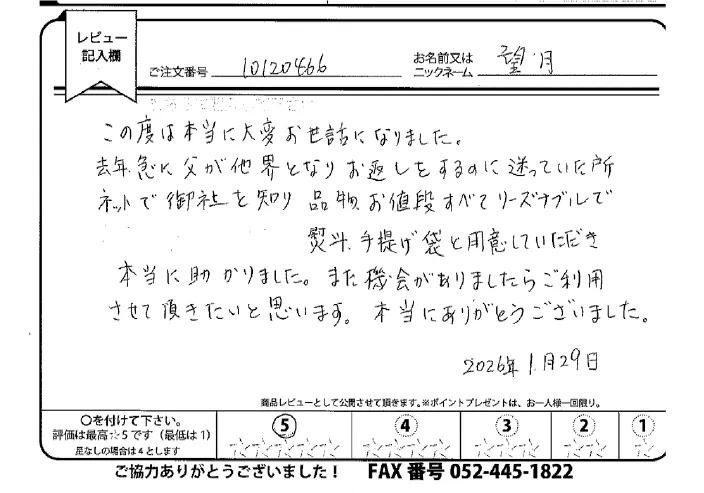 レビュー
記入欄
ご注文番号 10120466
お名前又は
ニックネーム 望月
この度は本当に大変お世話になりました。
去年急に父が他界となりお返しをするのに迷っていた所
ネットで御社を知り品物、お値段すべてリーズナブルで
熨斗、手提げ袋と用意していただき
本当に助かりました。また機会がありましたらご利用
させて頂きたいと思います。本当にありがとうございました。
2026年1月29日
商品レビューとして公開させて頂きます。※ポイントプレゼントは、お一人様一回限り。
○を付けて下さい。
評価は最高☆5です（最低は1）
星なしの場合は4とします
5 4 3 2 1
☆☆☆☆☆ ☆☆☆☆ ☆☆☆ ☆☆ ☆
ご協力ありがとうございました！ FAX番号 052-445-1822